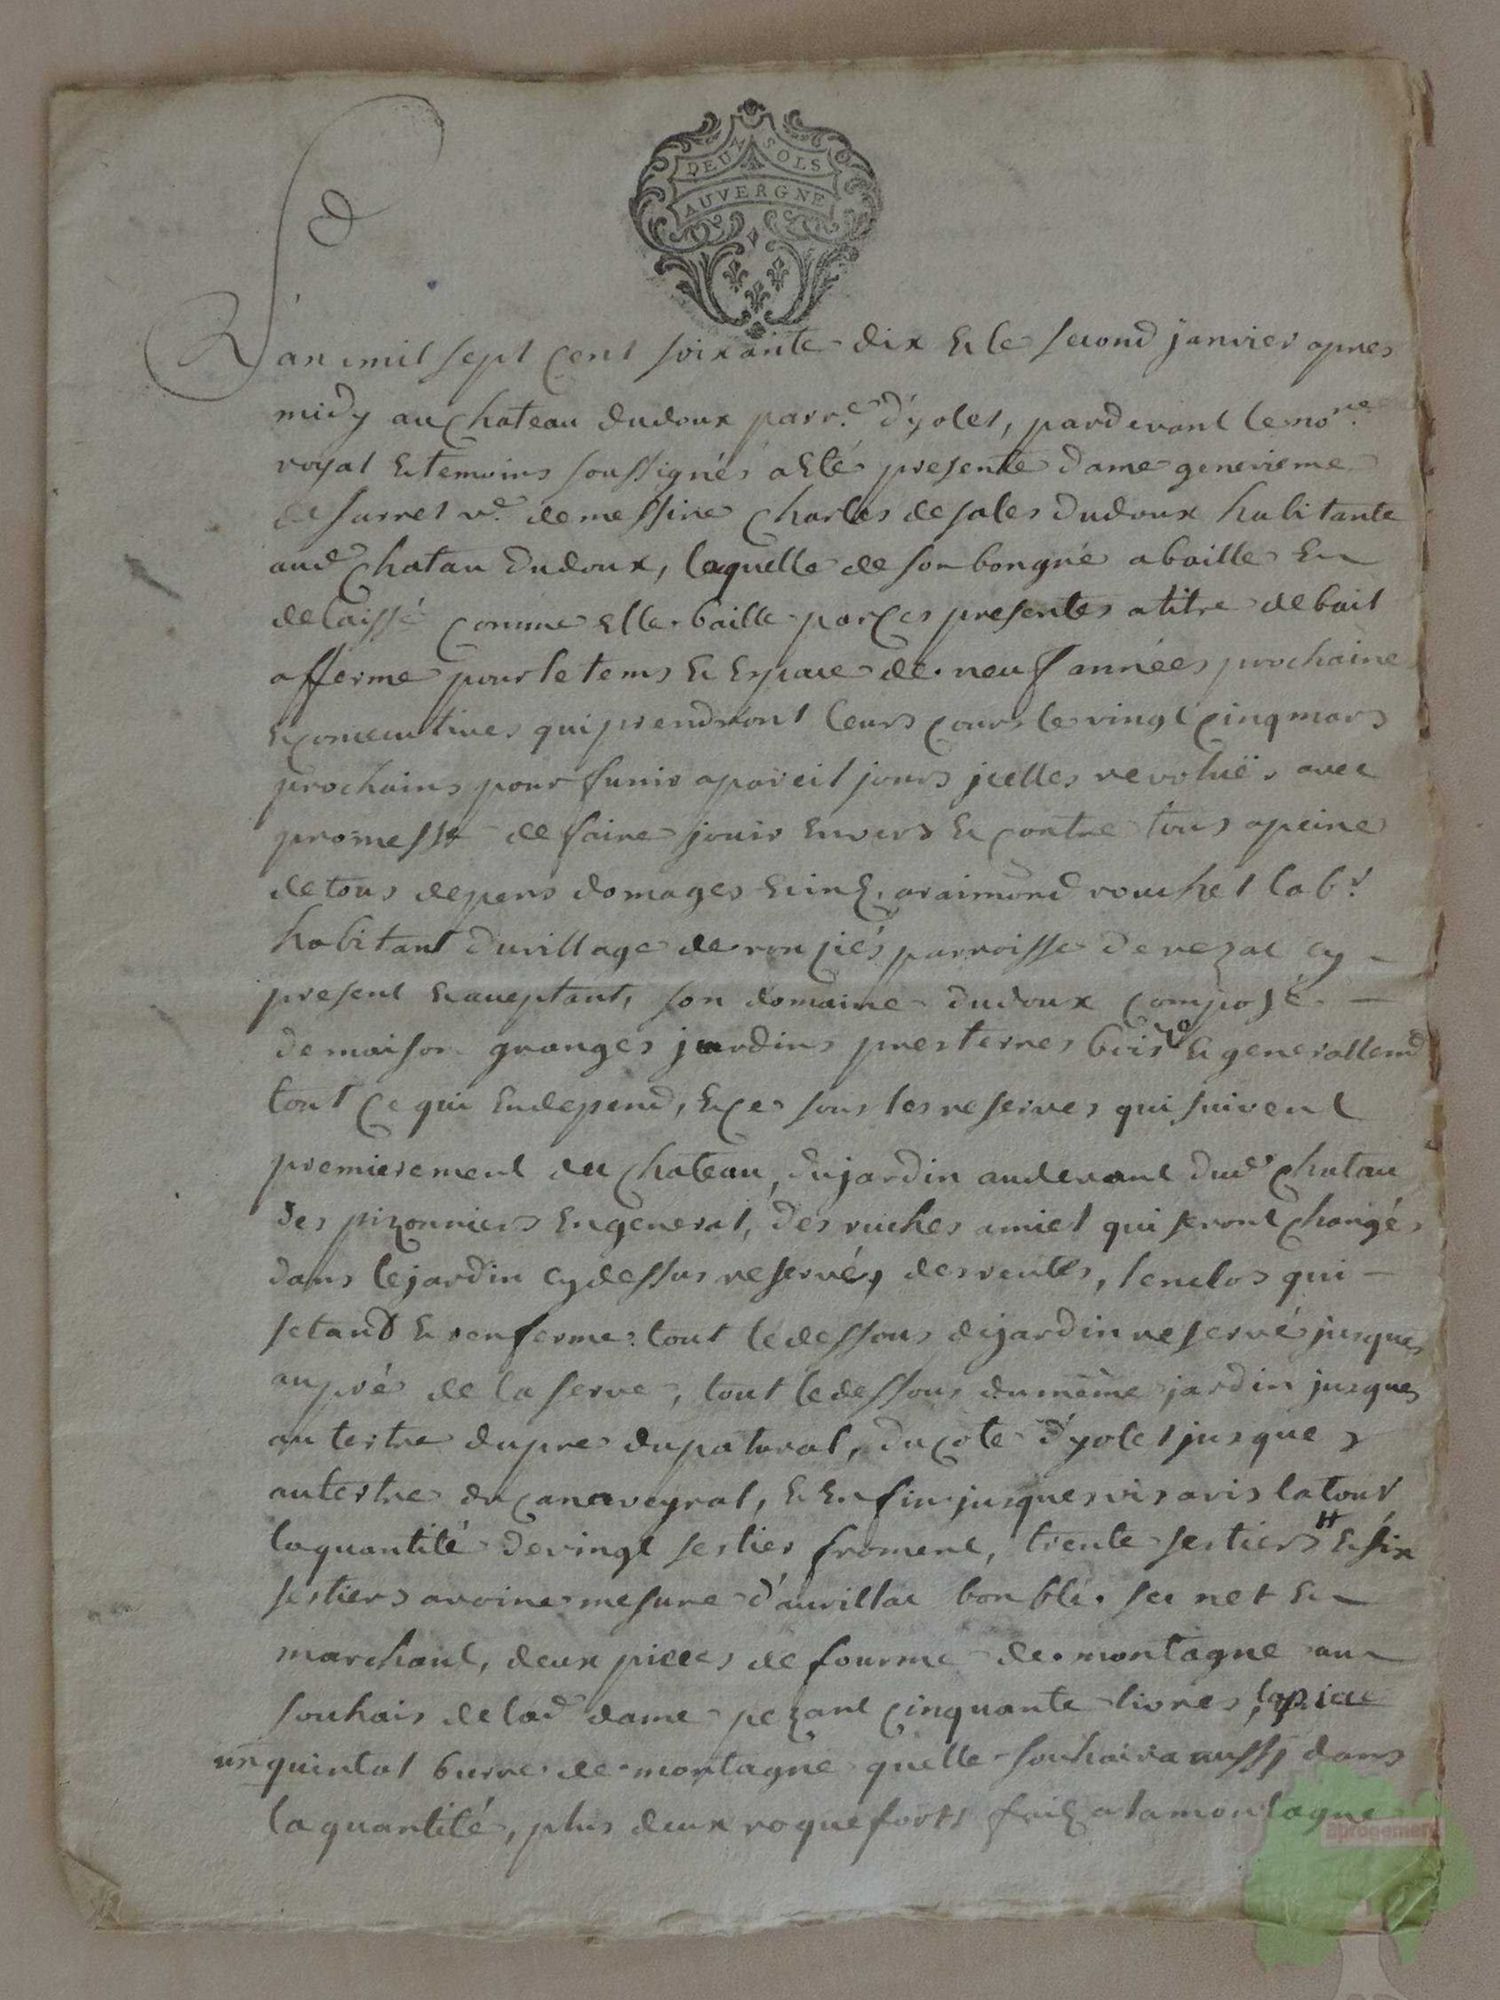 DEUX SOLS
AUVERGNE
L'an mil sept cent soixante dix & le second janvier apres
midy au chateau dudoux parr.e d'yolet, pardevant le no.re
royal & temoins soussignés a eté presente dame genevieme
de sarret v.e de messire charles de sales dudoux habitante
aud chatau dudoux, laquelle de son bon gré a baille et
delaissé comme elle baille par ces presentes a titre de bail
afferme pour le tems & espace de neuf années prochaine
& consecutives qui prendront leurs cours le vingt cinq mars
prochains pour funir a pareil jours icelles revoluës avec
promesse de faire jouir envers & contre tous a peine
de tous depens domages & in.ts a raimond rouchet lab.r
habitant du village de ronciés parroisse de vezac cy
present & aceptant, son domaine dudoux composé
de maison granges jardins pres terres bois & generallemt
tout ce qui en depend, & ce sous les reserves qui suivent
premierement du chateau, du jardin au devant dud chatau
des pizonniers en general, des ruches a miel qui seront changés
dans le jardin cy dessus reservé, des rentes, l'enclos qui
setand & renferme tout le dessous du jardin reservé jusques
au pré de la serve, tout le dessous du même jardin jusques
au tertre du pre du patural, du coté d'yolet jusques
au tertre du canaveyral, & enfin jusques vis a vis la tour
la quantité de vingt sestier froment, trente sestiers # & six
sestiers avoine mesure d'aurillac bon blé sec net &
marchand, deux pieces de fourme de montagne au
souhais de lad dame pezant cinquante livres la piece
un quintal burre de montagne quelle souhaira aussy dans
la quantité, plus deux roqueforts faits a la montagne
aprogemere